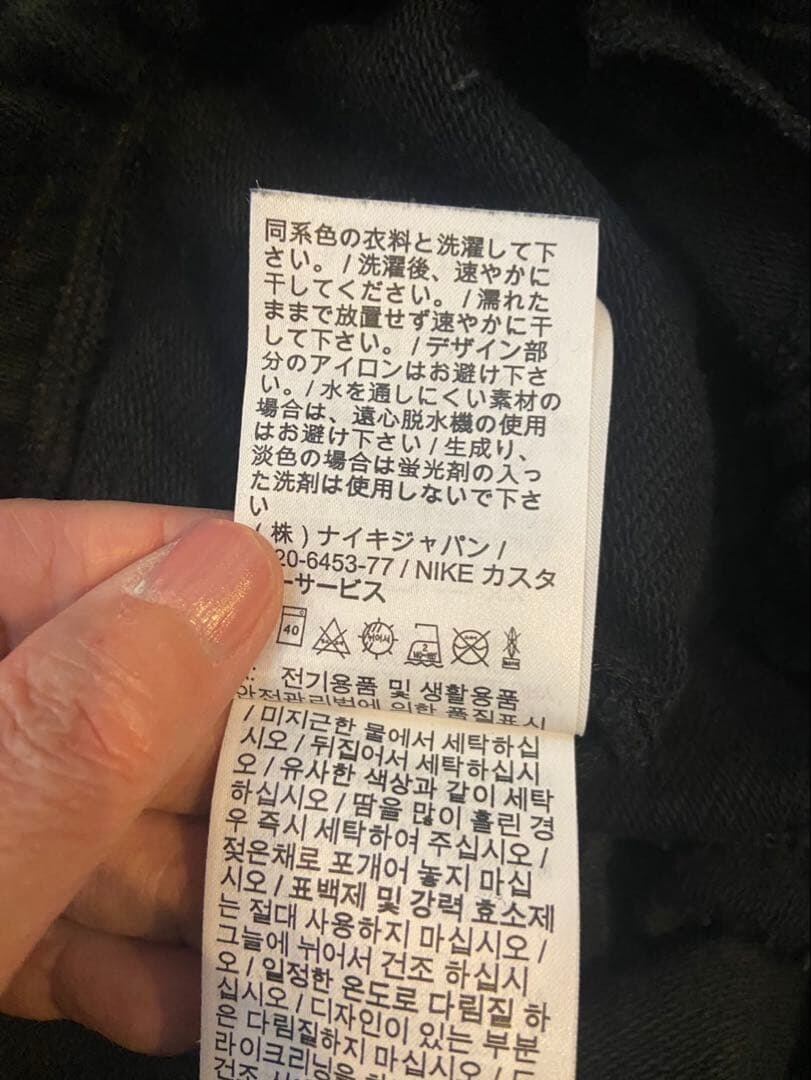 同系色の衣料と洗濯して下
さい。/洗濯後、速やかに
干してください。/濡れた
ままで放置せず速やかに干
して下さい。/デザイン部
分のアイロンはお避け下さ
い。/水を通しにくい素材の
場合は、遠心脱水機の使用
はお避け下さい/生成り、
淡色の場合は蛍光剤の入っ
た洗剤は使用しないで下さ
い
(株)ナイキジャパン/
20-6453-77 / NIKE カスタ
ーサービス
40 뉘어서 2
전기용품 및 생활용품
안전관리법에 의한 품질표시
/ 미지근한 물에서 세탁하십
시오 / 뒤집어서 세탁하십시
오 / 유사한 색상과 같이 세탁
하십시오 / 땀을 많이 흘린 경
우 즉시 세탁하여 주십시오 /
젖은채로 포개어 놓지 마십
시오 / 표백제 및 강력 효소제
는 절대 사용하지 마십시오 /
그늘에 뉘어서 건조 하십시
오 / 일정한 온도로 다림질 하
십시오 / 디자인이 있는 부분
은 다림질하지 마십시오 / 드
라이크리닝을
건조